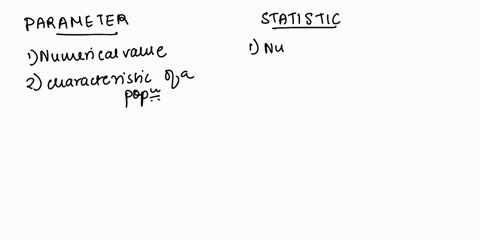 PARAMETER
1) Numerical value
2) characteristic of a
popⁿ
STATISTIC
1) Nu